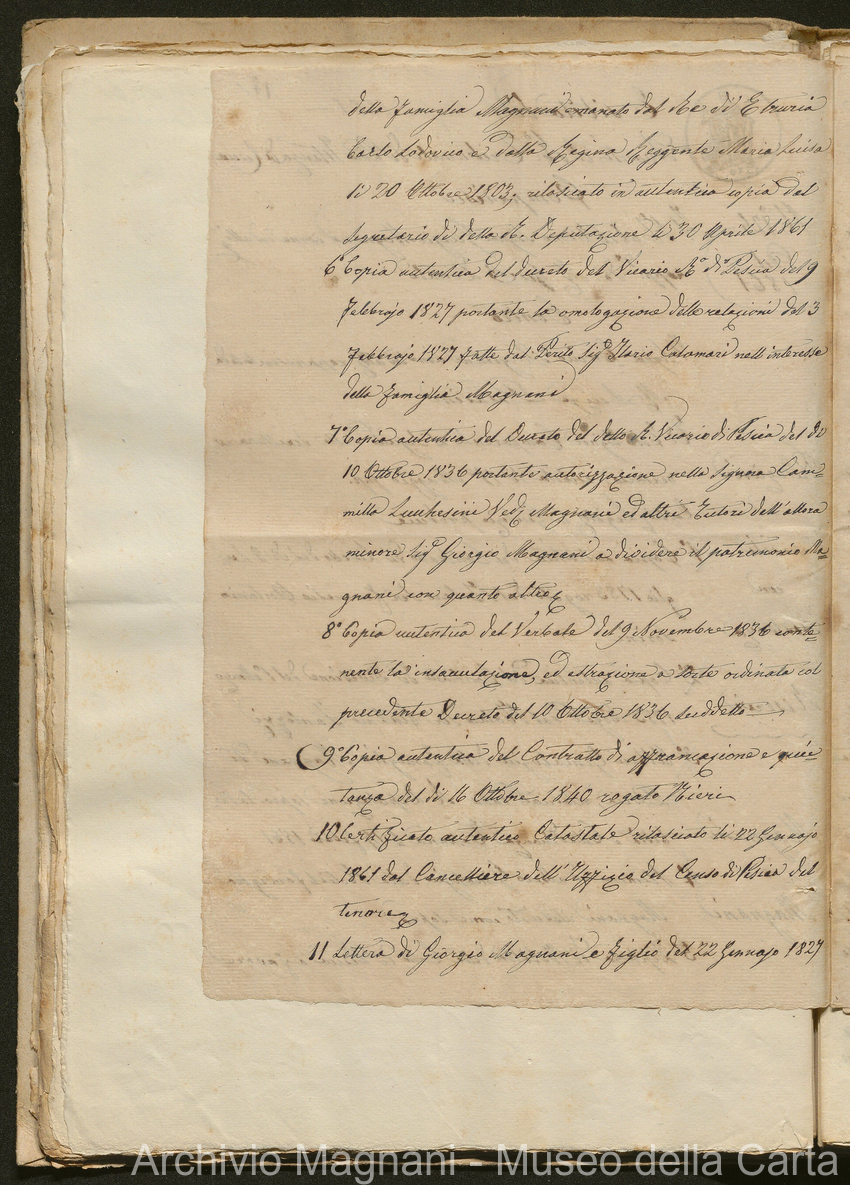 della famiglia Magnani emanato dal Re di Etruria
Carlo Lodovico e dalla Regina Reggente Maria Luisa
li 20 Ottobre 1803, rilasciato in autentica copia dal
Segretario di detta R. Deputazione li 30 Aprile 1861
6° Copia autentica del decreto del Vicario R.° di Pescia del 9
Febbrajo 1827 portante la omologazione delle relazioni del 3
Febbrajo 1827 fatte dal Perito Sig.e Ilario Catamari nell'interesse
della famiglia Magnani
7° Copia autentica del Decreto del detto R. Vicario di Pescia del dì
10 Ottobre 1836 portante autorizzazione nella Signora Cam=
milla Lucchesini Ved.a Magnani ed altri Tutori dell'allora
minore Sig.e Giorgio Magnani a dividere il patrimonio Ma=
gnani con quanto altro
8° Copia autentica del Verbale del 9 Novembre 1836 conte=
nente la insaccutazione, ed estrazione a sorte ordinata col
precedente Decreto del 10 Ottobre 1836 suddetto
9° Copia autentica del Contratto di affrancazione e quie=
tanza del dì 16 Ottobre 1840 rogato Nieri
10 Certificato autentico Catastale rilasciato li 22 Gennajo
1861 dal Cancelliere dell'Uffizio del Censo di Pescia del
tenore
11 Lettera di Giorgio Magnani e figlio del 22 Gennajo 1827
Archivio Magnani - Museo della Carta